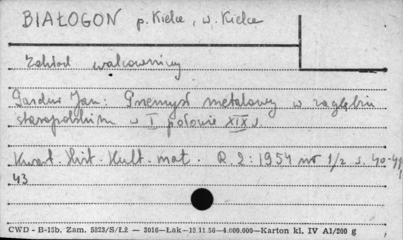 BIAŁOGON p. Kielce, w. Kielce
Zakład walcowniczy
Pazdur Jan: Przemysł metalowy w zagłębiu
staropolskim w I połowie XIX w.
Kwart. Hist. Kult. mat. R. 2: 1954 nr 1/2 s. 40-41,
43
CWD - B-15b. Zam. 5823/S/Łż — 3016—Łak—12 11 56—4.000.000—Karton kl. IV A1/200 g